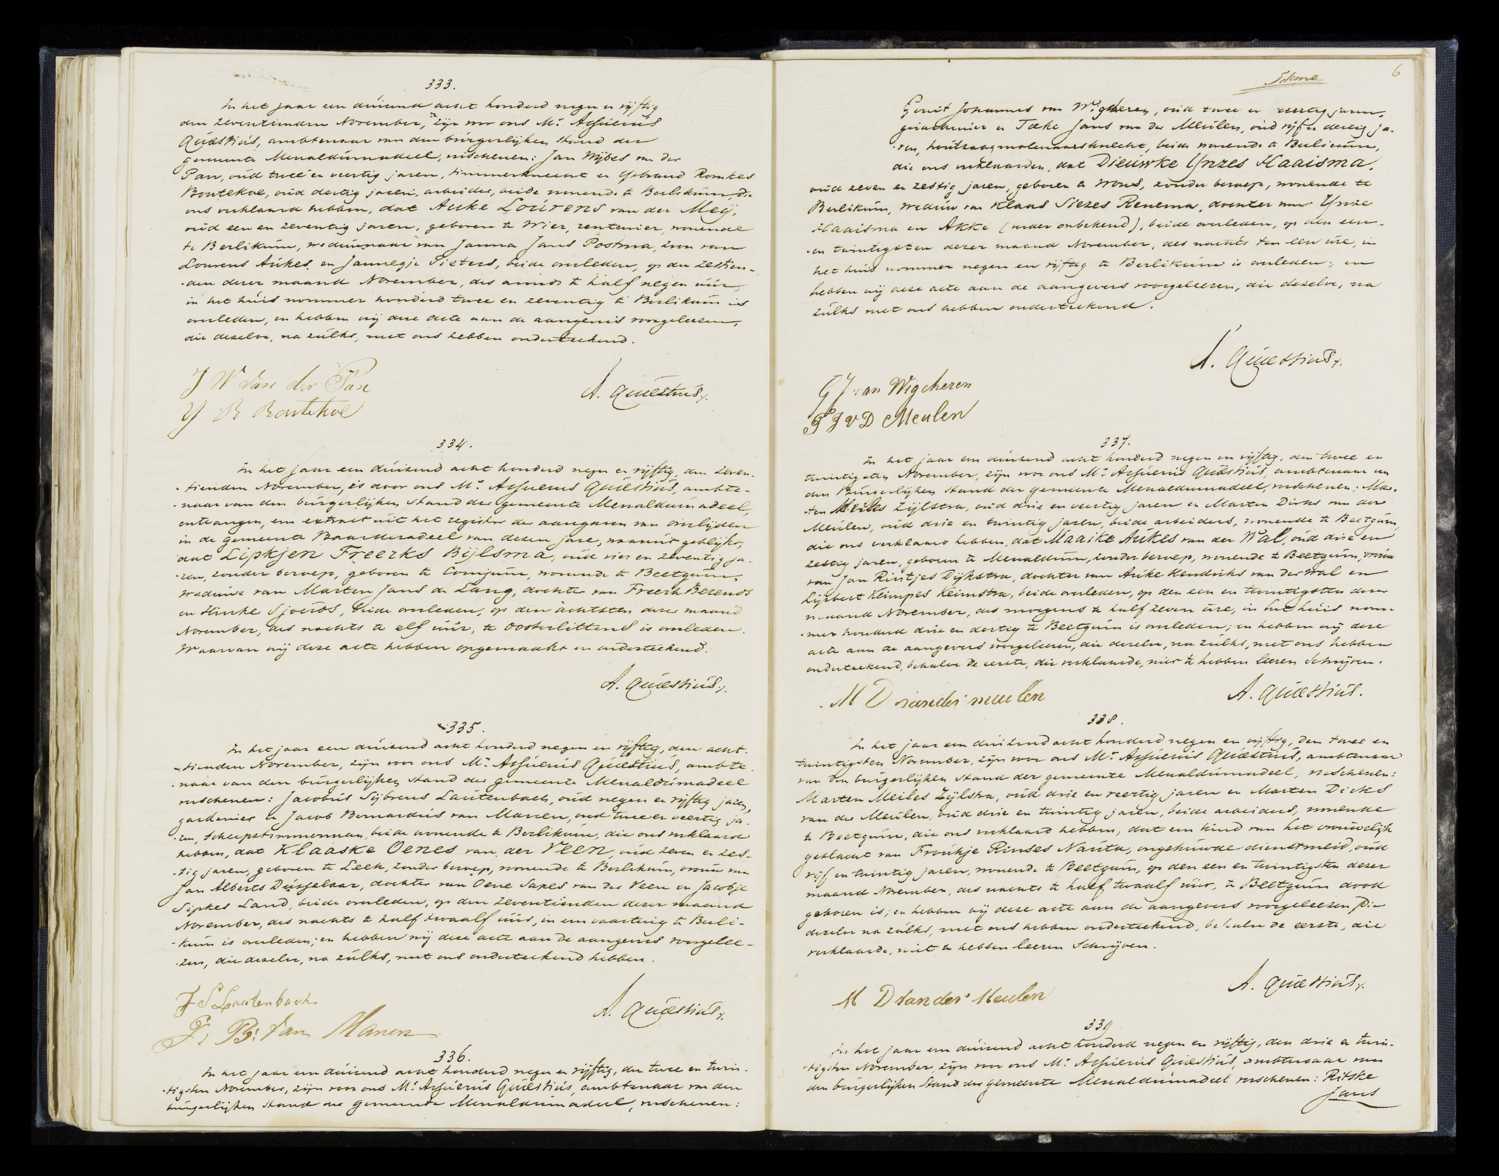 333.
In het jaar een duizend acht honderd negen en vijftig
den zeventienden November, zijn voor ons Mr. Assuerus
Quæstius, ambtenaar van den burgerlijken stand der
gemeente Menaldumadeel, verschenen: Jan Wijbes van der
Pan, oud twee en veertig jaren, timmerknecht en IJsbrand Romkes
Bontekoe, oud dertig jaren, arbeider, beide wonende te Berlikum, die
ons verklaard hebben, dat Auke Lourens van der Meij,
oud een en zeventig jaren, geboren te Wier, rentenier, wonende
te Berlikum, weduwnaar van Janna Jans Postma, zoon van
Lourens Aukes en Jannegje Pieters, beide overleden, op den zestien-
den dezer maand November, des avonds te half negen uur,
in het huis nommer honderd twee en zeventig te Berlikum is
overleden, en hebben wij deze acte aan de aangevers voorgelezen,
die dezelve, na zulks, met ons hebben onderteekend.
J W van der Pan
Y R Bontekoe
A. Quæstius,
334.
In het jaar een duizend acht honderd negen en vijftig, den zeven-
tienden November, is door ons Mr. Assuerus Quæstius, ambte-
naar van den burgerlijken stand der gemeente Menaldumadeel,
ontvangen, een extract uit het register der aangaven van overlijden
in de gemeente Baarderadeel van dezen jare, waaruit geblijkt,
dat Lipkjen Freerks Bijlsma, oud vier en zeventig ja-
ren, zonder beroep, geboren te Cornjum, wonende te Beetgum,
weduwe van Marten Jans de Lang, dochter van Freerk Berends
en Hinke Sjoerds, beide overleden, op den achtsten dezer maand
November, des nachts te elf uur, te Oosterlittens is overleden.
Waarvan wij deze acte hebben opgemaakt en onderteekend.
A. Quæstius,
335.
In het jaar een duizend acht honderd negen en vijftig, den acht-
tienden November, zijn voor ons Mr. Assuerus Quæstius, ambte-
naar van den burgerlijken stand der gemeente Menaldumadeel
verschenen: Jacobus Sijbrens Lautenbach, oud negen en vijftig jaren,
gardenier en Jacob Bernardus van Manen, oud twee en veertig ja-
ren, scheepstimmerman, beide wonende te Berlikum, die ons verklaard
hebben, dat Klaaske Oenes van der Veen, oud zeven en zes-
tig jaren, geboren te Leek, zonder beroep, wonende te Berlikum, vrouw van
Jan Alberts Duisselaar, dochter van Oene Sapes van der Veen en Jacobje
Sipkes Land, beide overleden, op den zeventienden dezer maand
November, des nachts te half twaalf uur, in een vaartuig te Berli-
kum is overleden; en hebben wij deze acte aan de aangevers voorgele-
zen, die dezelve, na zulks, met ons onderteekend hebben.
J S Lautenbach
J. B. van Manen
A. Quæstius,
336.
In het jaar een duizend acht honderd negen en vijftig, den twee en twin-
tigsten November, zijn voor ons Mr. Assuerus Quæstius, ambtenaar van den
burgerlijken stand der gemeente Menaldumadeel, verschenen:
6
Gerrit Johannes van Wigcheren, oud twee en veertig jaren,
en Tæke Jans van der Meulen, oud vijf en dertig ja-
ren, houtzaagmolenaarsknecht, beide wonende te Berlikum,
die ons verklaarden, dat Dieuwke Ynzes Haaisma,
oud zeven en zestig jaren, geboren te Wons, zonder beroep, wonende te
Berlikum, weduwe van Klaas Siezes Renema, dochter van Ynze
Haaisma en Akke (verder onbekend), beide overleden, op den een-
en twintigsten dezer maand November, des nachts ten een ure, in
het huis nommer negen en vijftig te Berlikum is overleden; en
hebben wij deze acte aan de aangevers voorgelezen, die dezelve, na
zulks met ons hebben onderteekend.
A. Quæstius,
G J van Wigcheren
T J v D Meulen
337.
In het jaar een duizend acht honderd negen en vijftig, den twee en
twintigsten November, zijn voor ons Mr. Assuerus Quæstius, ambtenaar van
den burgerlijken stand der gemeente Menaldumadeel, verschenen: Mar-
ten Meiles Zijlstra, oud drie en veertig jaren en Marten Dirks van der
Meulen, oud drie en twintig jaren, beide arbeiders, wonende te Beetgum,
die ons verklaard hebben, dat Maaike Aukes van der Wal, oud drie en
zestig jaren, geboren te Menaldum, zonder beroep, wonende te Beetgum, vrouw
van Jan Ruurtjes Dijkstra, dochter van Auke Hendriks van der Wal en
Lijsbert Klimpes Heimstra, beide overleden, op den een en twintigsten dezer
maand November, des morgens te half zeven ure, in het huis nom-
mer honderd drie en dertig te Beetgum is overleden; en hebben wij deze
acte aan de aangevers voorgelezen, die dezelve, na zulks, met ons hebben
onderteekend, behalve de eerste, die verklaarde, niet te hebben leeren schrijven.
M D van der meulen
A. Quæstius.
338.
In het jaar een duizend acht honderd negen en vijftig, den twee en
twintigsten November, zijn voor ons Mr. Assuerus Quæstius, ambtenaar
van den burgerlijken stand der gemeente Menaldumadeel, verschenen:
Marten Meiles Zijlstra, oud drie en veertig jaren en Marten Dirks
van der Meulen, oud drie en twintig jaren, beide arbeiders, wonende
te Beetgum, die ons verklaard hebben, dat een kind van het vrouwelijk
geslacht van Froukje Rinses Nauta, ongehuwde dienstmeid, oud
vijf en twintig jaren, wonende te Beetgum, op den een en twintigsten dezer
maand November, des nachts te half twaalf uur, te Beetgum dood
geboren is; en hebben wij deze acte aan de aangevers voorgelezen, die
dezelve na zulks, met ons hebben onderteekend, behalve de eerste, die
verklaarde, niet te hebben leeren schrijven.
A. Quæstius,
M D van der Meulen
339
In het jaar een duizend acht honderd negen en vijftig, den drie en twin-
tigsten November, zijn voor ons Mr. Assuerus Quæstius, ambtenaar van
den burgerlijken stand der gemeente Menaldumadeel verschenen: Ritske
Jans